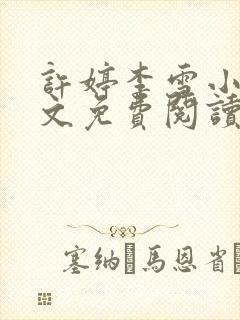 許婷李雪小
文免費閱讀
塞納·馬恩省